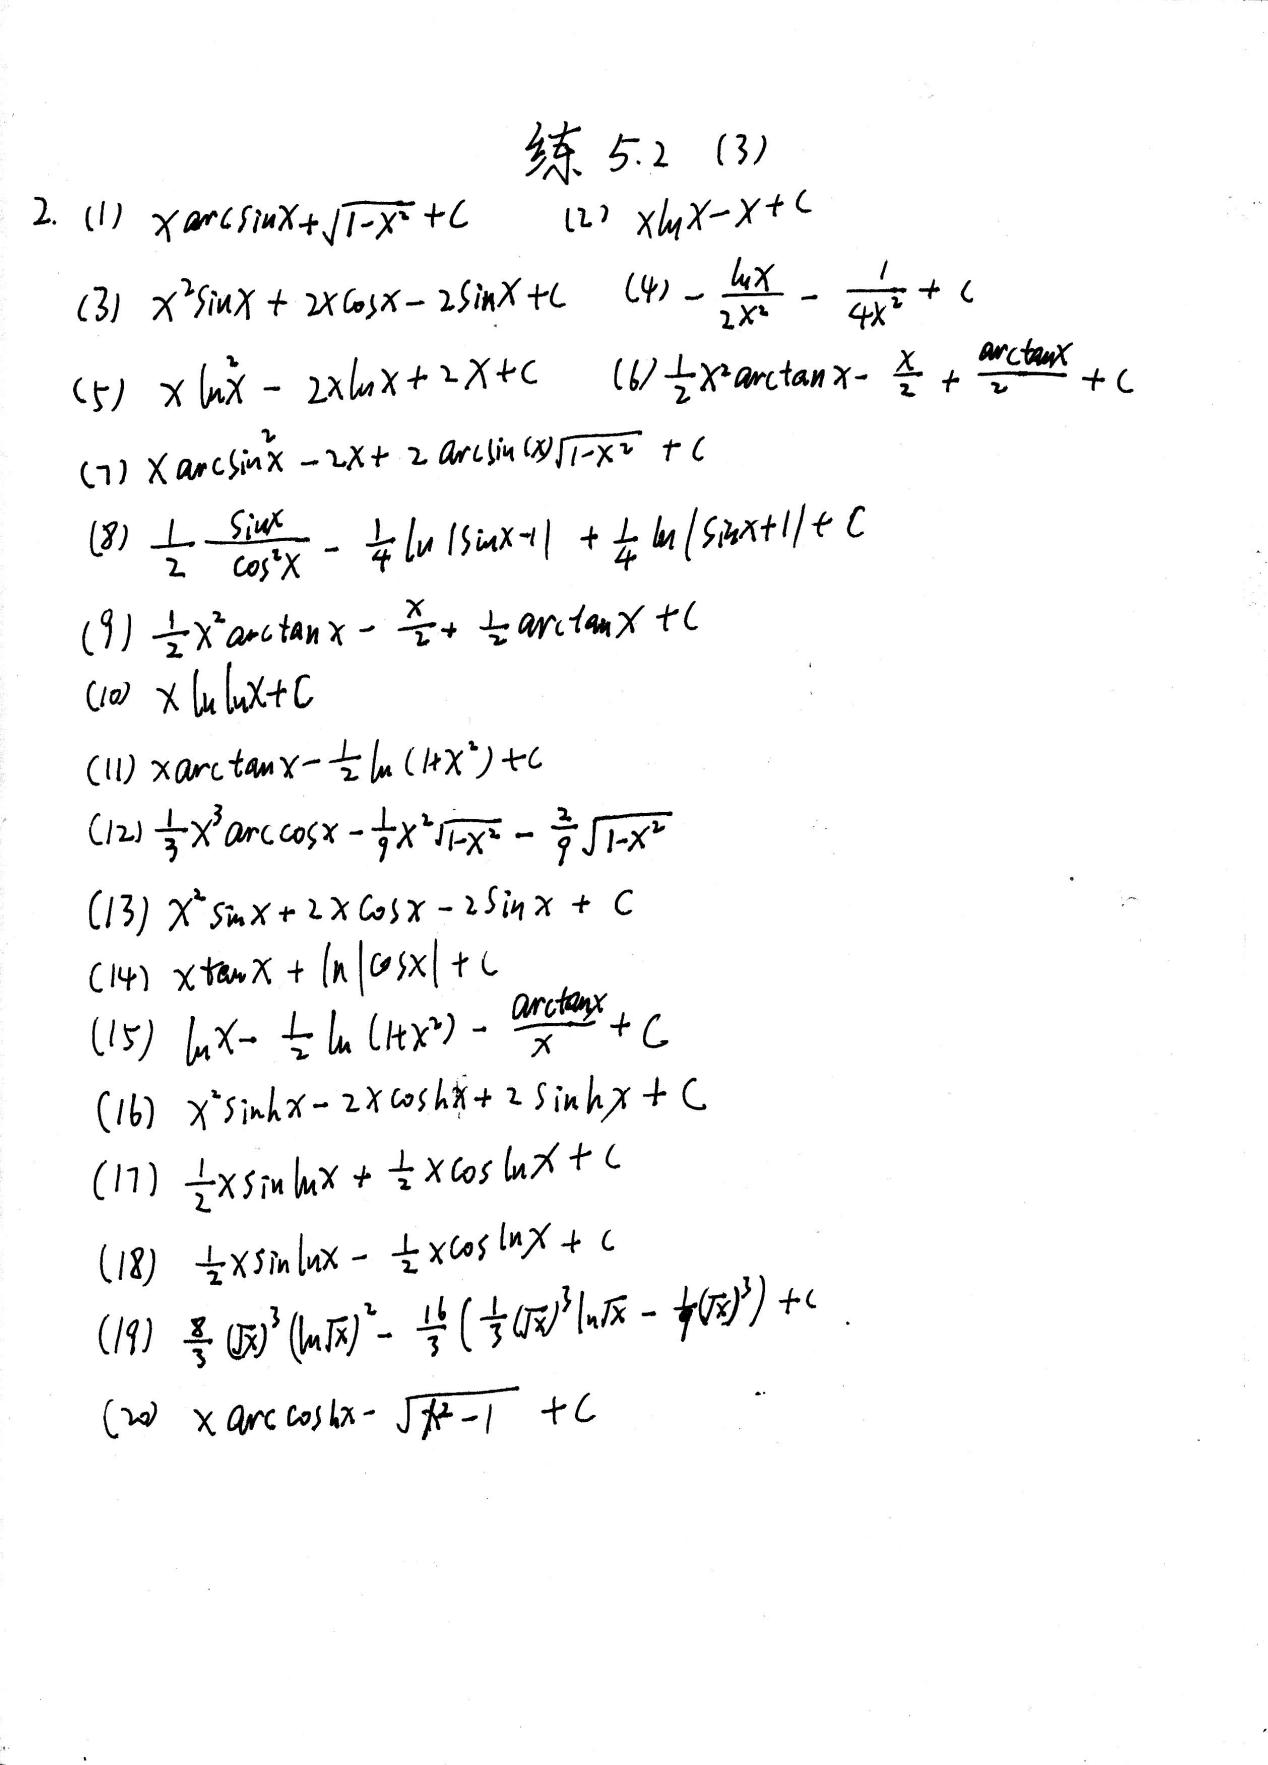 练 5.2 (3)
2. (1) x arcsinx + √(1-x²) + C (2) xlnx - x + C
(3) x²sinx + 2xcosx - 2sinx + C (4) - lnx/2x² - 1/4x² + C
(5) x ln²x - 2xlnx + 2x + C (6) 1/2 x² arctanx - x/2 + arctanx/2 + C
(7) x arcsin²x - 2x + 2 arcsin(x)√(1-x²) + C
(8) 1/2 sinx/cos²x - 1/4 ln|sinx-1| + 1/4 ln|sinx+1| + C
(9) 1/2 x² arctanx - x/2 + 1/2 arctanx + C
(10) x ln lnx + C
(11) x arctanx - 1/2 ln(1+x²) + C
(12) 1/3 x³ arccosx - 1/9 x²√(1-x²) - 2/9 √(1-x²)
(13) x² sinx + 2x cosx - 2 sinx + C
(14) x tanx + ln|cosx| + C
(15) lnx - 1/2 ln(1+x²) - arctanx/x + C
(16) x² sinhx - 2x coshx + 2 sinhx + C
(17) 1/2 x sin lnx + 1/2 x cos lnx + C
(18) 1/2 x sin lnx - 1/2 x cos lnx + C
(19) 8/3 (√x)³ (ln√x)² - 16/3 (1/3 (√x)³ ln√x - 1/9 (√x)³) + C
(20) x arccoshx - √(x²-1) + C